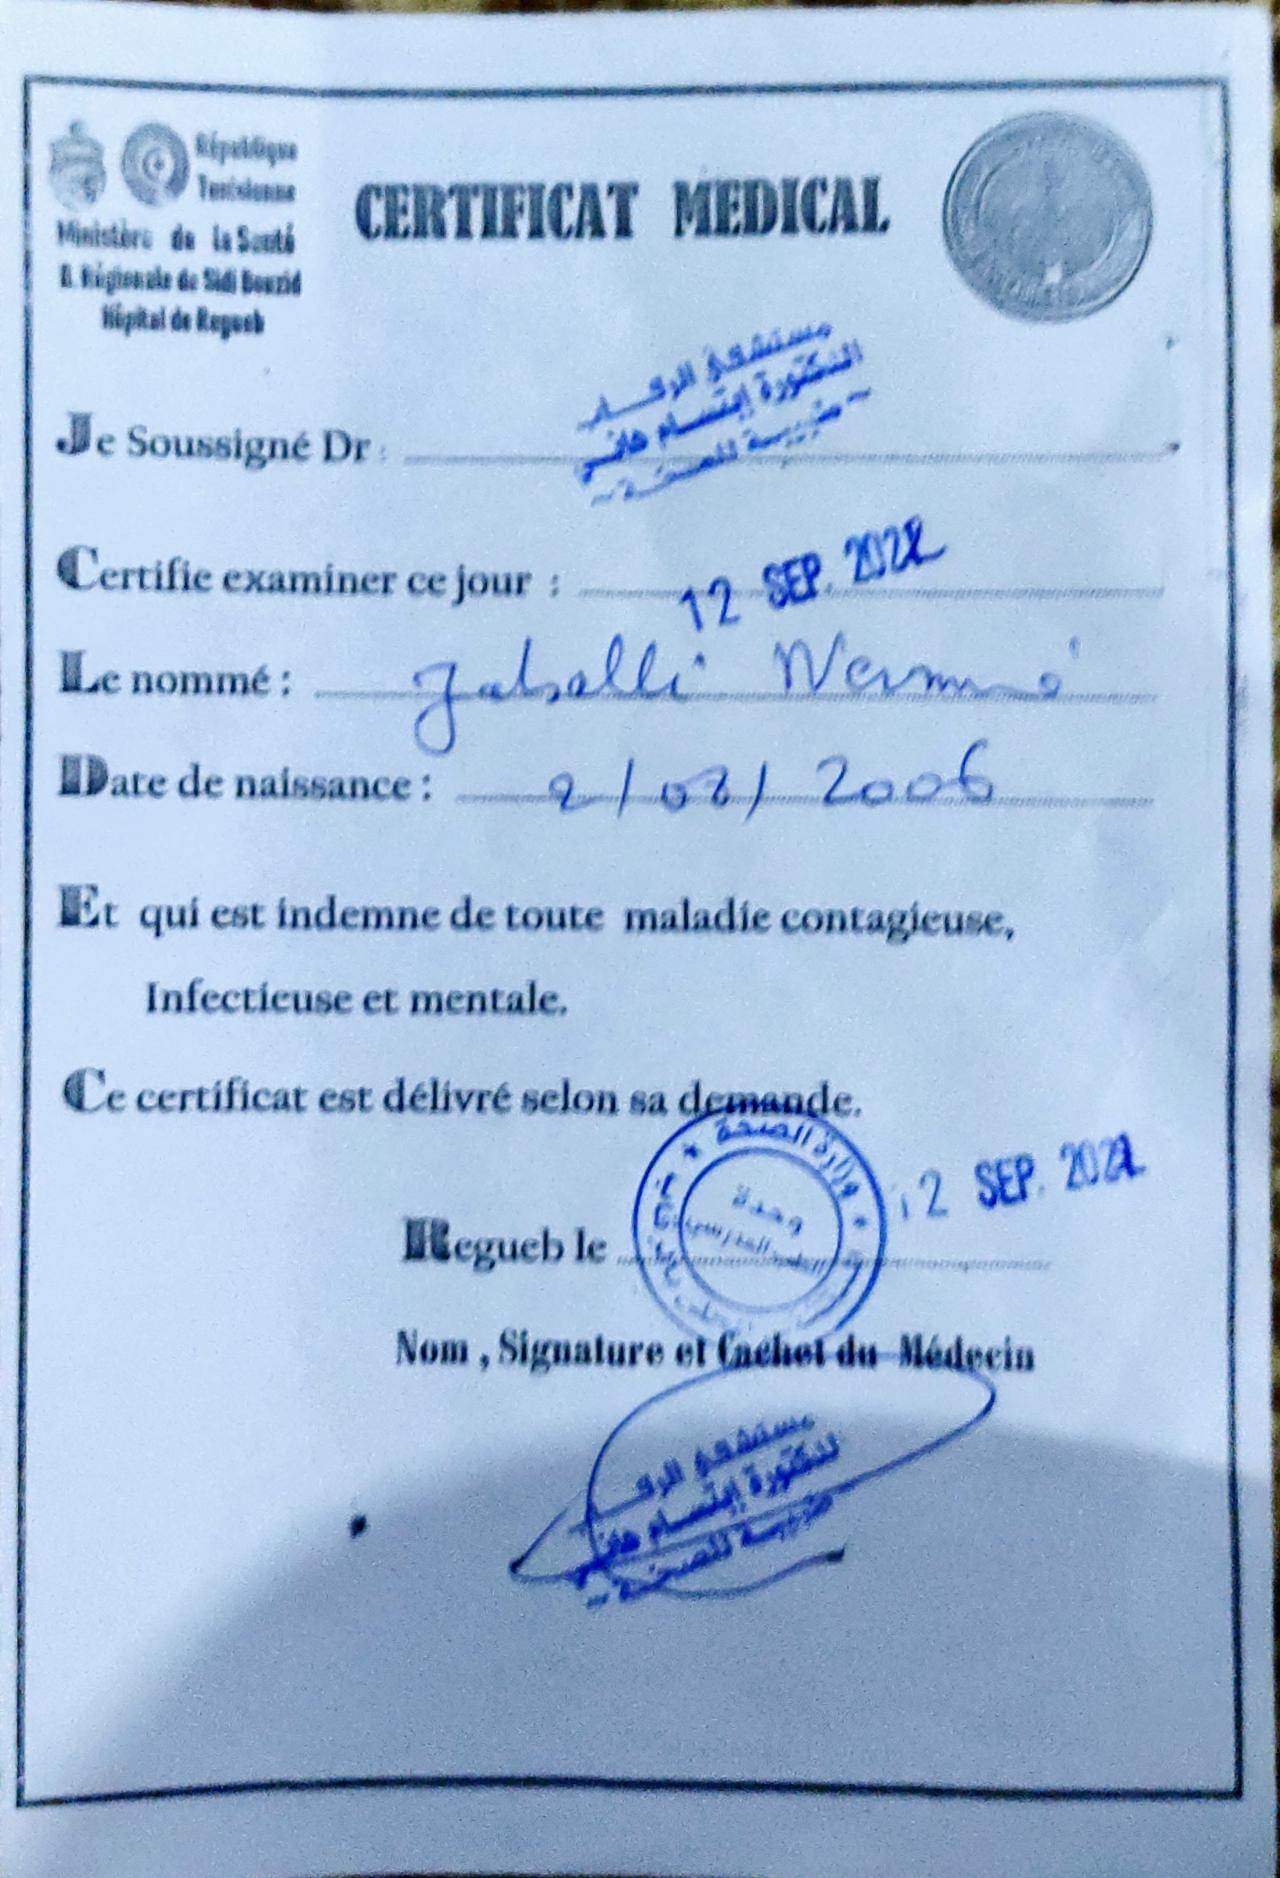 République
Tunisienne
Ministère de la Santé
D. Régionale de Sidi Bouzid
Hôpital de Regueb
CERTIFICAT MEDICAL
مستشفى الرقاب
الدكتورة إبتسام هاني
Je Soussigné Dr :
Certifie examiner ce jour : 12 SEP. 2022
Le nommé : Jaballi
Date de naissance : 2/03/2006
Et qui est indemne de toute maladie contagieuse,
Infectieuse et mentale.
Ce certificat est délivré selon sa demande.
وزارة الصحة
وحدة
Regueb le 12 SEP. 2022
Nom , Signature et Cachet du Médecin
مستشفى الرقاب
الدكتورة إبتسام هاني